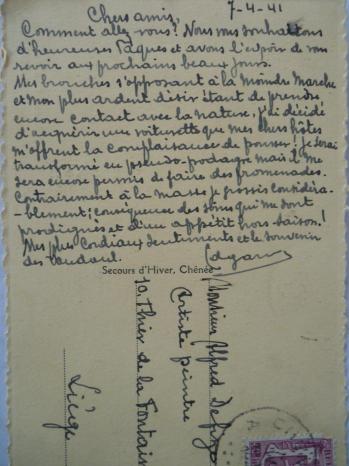 7-4-41
Chers amis,
Comment allez-vous? Nous vous souhaitons
d'heureuses Pâques et avons l'espoir de vous
revoir aux prochains beaux jours.
Mes bronches s'opposant à la moindre marche
et mon plus ardent désir étant de prendre
encore contact avec la nature, j'ai décidé
d'acquérir une voiturette que mes chers hôtes
m'offrent la complaisance de pousser! Je serai
transformé en pseudo-podagre mais il me
sera encore permis de faire des promenades.
Contrairement à la masse je grossis considéra-
blement; conséquence des soins qui me sont
prodigués et d'un appétit hors-saison!
Mes plus cordiaux sentiments et le souvenir
des
Secours d'Hiver, Chênée
Monsieur Alfred
Artiste peintre
10, Thier de la Fontaine
Liège